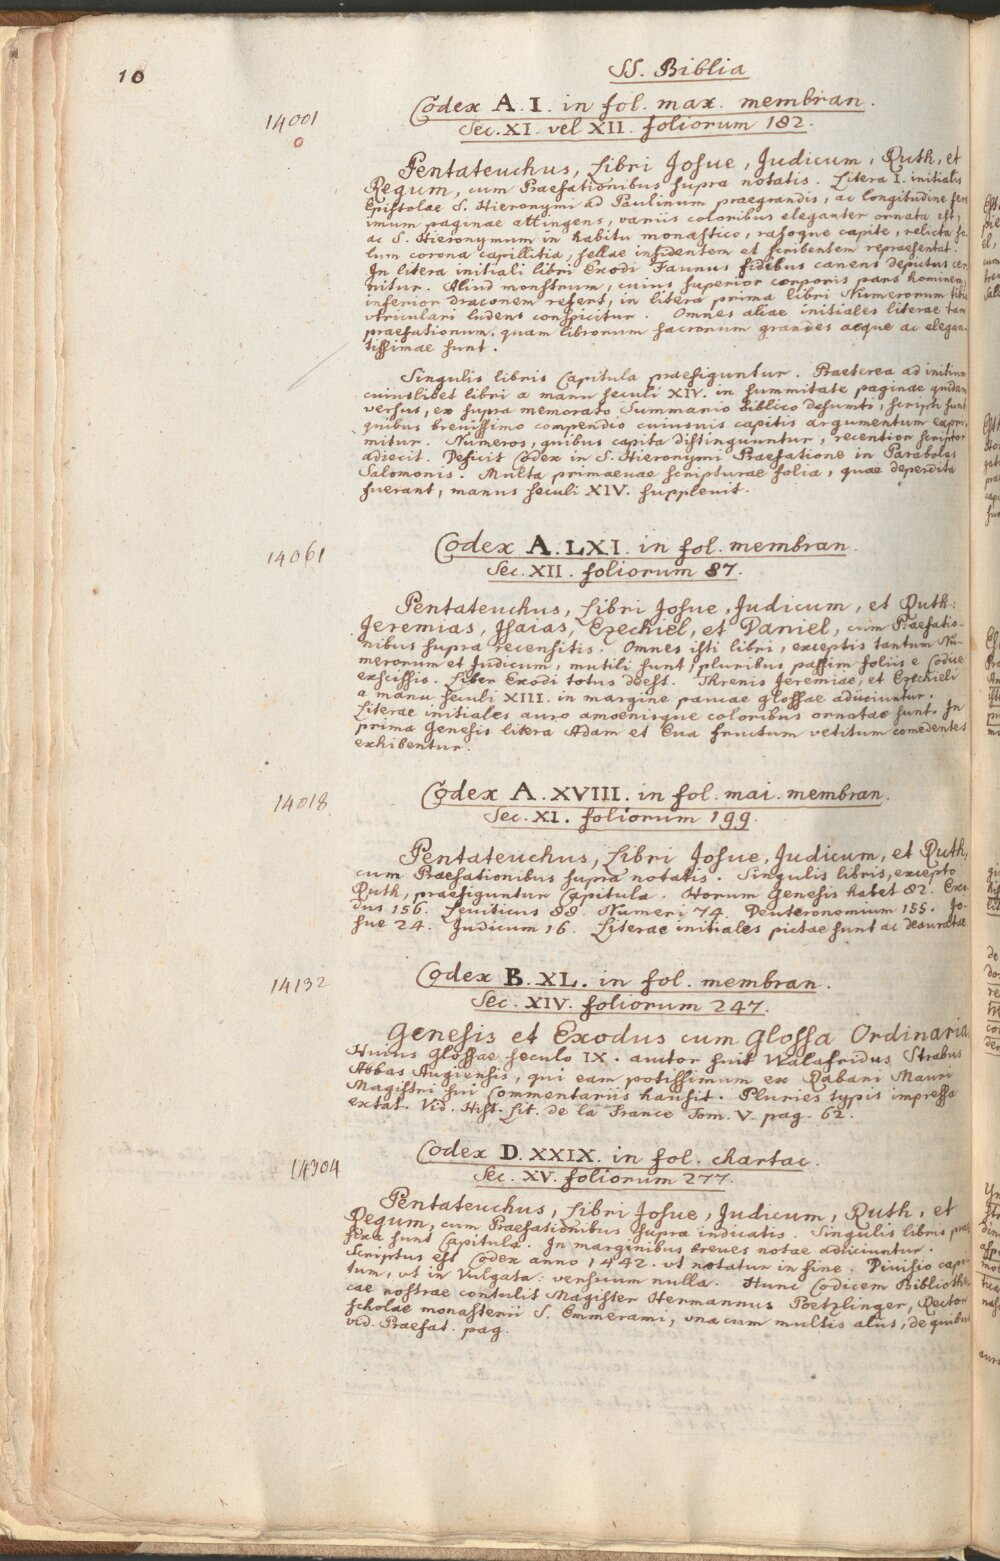 10
SS. Biblia
14001
Codex A. I. in fol. max. membran.
Sec. XI. vel XII. foliorum 182.
Pentateuchus, Libri Josue, Judicum, Ruth, et
Regum, cum Praefationibus supra notatis. Litera I. initialis
Epistolae S. Hieronymi ad Paulinum praegrandis, ac longitudine fere
imum paginae attingens, variis coloribus eleganter ornata est,
ac S. Hieronymum in habitu monastico, rasoque capite, relicta so-
lum corona capillitia, sellae insidentem et scribentem repraesentat.
In litera initiali libri Exodi Faunus fidibus canens depictus cer-
nitur. Aliud monstrum, cuius superior corporis pars hominem,
inferior draconem refert, in litera prima libri Numerorum tibia
utriculari ludens conspicitur. Omnes aliae initiales literae tam
praefationum, quam librorum sacrorum grandes aeque ac elegan-
tissimae sunt.
Singulis libris Capitula praefiguntur. Praeterea ad initium
cuiuslibet libri a manu seculi XIV. in summitate paginae quidam
versus, ex supra memorato Summario Biblico desumti, scripti sunt
quibus brevissimo compendio cuiusvis capitis argumentum expri-
mitur. Numeros, quibus capita distinguuntur, recentior scriptor
adiecit. Desicit Codex in S. Hieronymi Praefatione in Parabolas
Salomonis. Multa primaevae scripturae folia, quae deperdita
fuerant, manus seculi XIV. supplevit.
14061
Codex A. LXI. in fol. membran.
Sec. XII. foliorum 87.
Pentateuchus, Libri Josue, Judicum, et Ruth:
Jeremias, Isaias, Ezechiel, et Daniel, cum Praefatio-
nibus supra recensitis. Omnes isti libri, exceptis tantum Nu-
merorum et Judicum, mutili sunt, pluribus passim foliis e Codice
exscissis. Liber Exodi totus deest. Threnis Jeremiae, et Ezechieli
a manu seculi XIII. in margine paucae glossae adiiciuntur.
Literae initiales auro amoenisque coloribus ornatae sunt. In
prima Genesis litera Adam et Eva fructum vetitum comedentes
exhibentur.
14018
Codex A. XVIII. in fol. mai. membran.
Sec. XI. foliorum 199.
Pentateuchus, Libri Josue, Judicum, et Ruth,
cum Praefationibus supra notatis. Singulis libris, excepto
Ruth, praefiguntur Capitula. Horum Genesis habet 82. Exo-
dus 156. Leviticus 88. Numeri 74. Deuteronomium 155. Jo-
sue 24. Judicum 16. Literae initiales pictae sunt ac deauratae.
14132
Codex B. XL. in fol. membran.
Sec. XIV. foliorum 247.
Genesis et Exodus cum Glossa Ordinaria
Huius glossae seculo IX. auctor fuit Walafridus Strabus
Abbas Augiensis, qui eam potissimum ex Rabani Mauri
Magistri sui Commentariis hausit. Pluries typis impressa
extat. Vid. Hist. Lit. de la France Tom. V. pag. 62.
14304
Codex D. XXIX. in fol. chartac.
Sec. XV. foliorum 277.
Pentateuchus, Libri Josue, Judicum, Ruth, et
Regum, cum Praefationibus supra indicatis. Singulis libris prae-
fixa sunt Capitula. In marginibus breves notae adiiciuntur.
Scriptus est Codex anno 1442. ut notatur in fine. Divisio capi-
tum, ut in Vulgata: versuum nulla. Hunc Codicem Bibliothe-
cae nostrae contulit Magister Hermannus Poetzlinger, Rector
scholae monasterii S. Emmerami, una cum multis aliis, de quibus
vid. Praefat. pag.